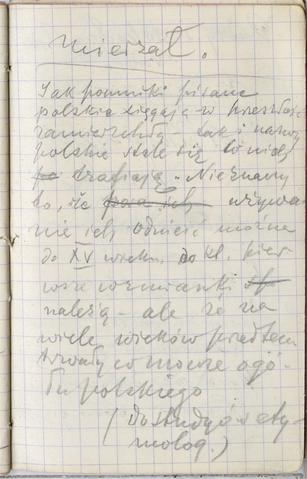 Mierzat.
Jak pomniki pisane
polskie sięgają w przeszłość
zamierzchłą – tak i nazwy
polskie stale się w nich
trafiają.
to, że używa
nie ich odnieść można
do XV wieku, do kt. pier
wsze wzmianki
należą – ale że na
wiele wieków przedtem
trwały w mowie ogó-
łu polskiego
(Do studyów ety-
molog.)